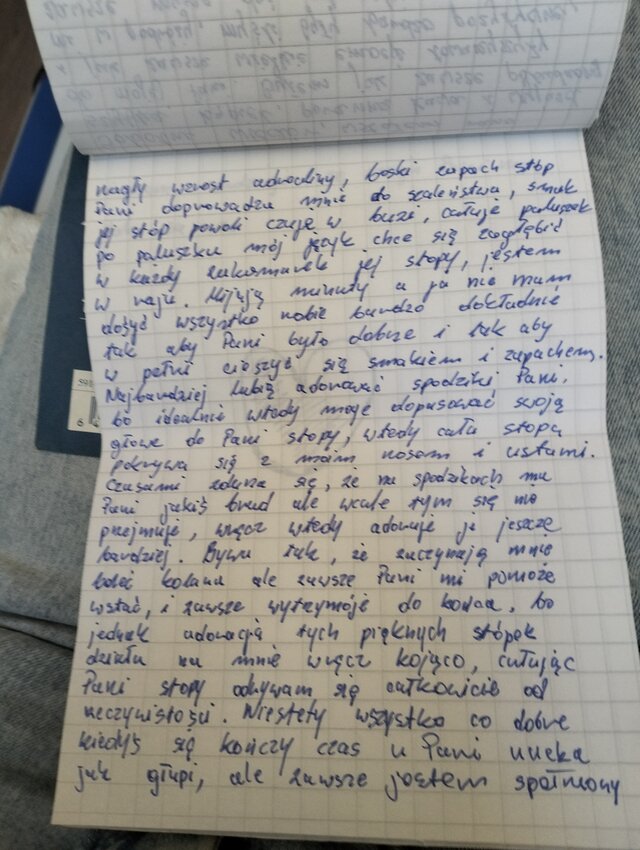 nagły wzrost adrenaliny, boski zapach stóp
Pani doprowadza mnie do szaleństwa, smak
jej stóp powoli czuję w buzi, całuję paluszek
po paluszku mój język chce się zagłębić
w każdy zakamarek jej stopy, jestem
w raju. Mijają minuty a ja nie mam
dosyć wszystko robię bardzo dokładnie
tak aby Pani było dobrze i tak aby
w pełni cieszyć się smakiem i zapachem.
Najbardziej lubię adorować spodziki Pani,
bo idealnie wtedy mogę dopasować swoją
głowę do Pani stopy, wtedy cała stopa
pokrywa się z moim nosem i ustami.
Czasami zdarza się, że na spodzikach ma
Pani jakiś brud ale wcale tym się nie
przejmuję, wręcz wtedy adoruję je jeszcze
bardziej. Bywa tak, że zaczynają mnie
boleć kolana ale zawsze Pani mi pomoże
wstać, i zawsze wytrzymuję do końca, bo
jednak adoracja tych pięknych stópek
działa na mnie wręcz kojąco, całując
Pani stopy odrywam się całkowicie od
rzeczywistości. Niestety wszystko co dobre
kiedyś się kończy czas u Pani ucieka
jak głupi, ale zawsze jestem spełniony